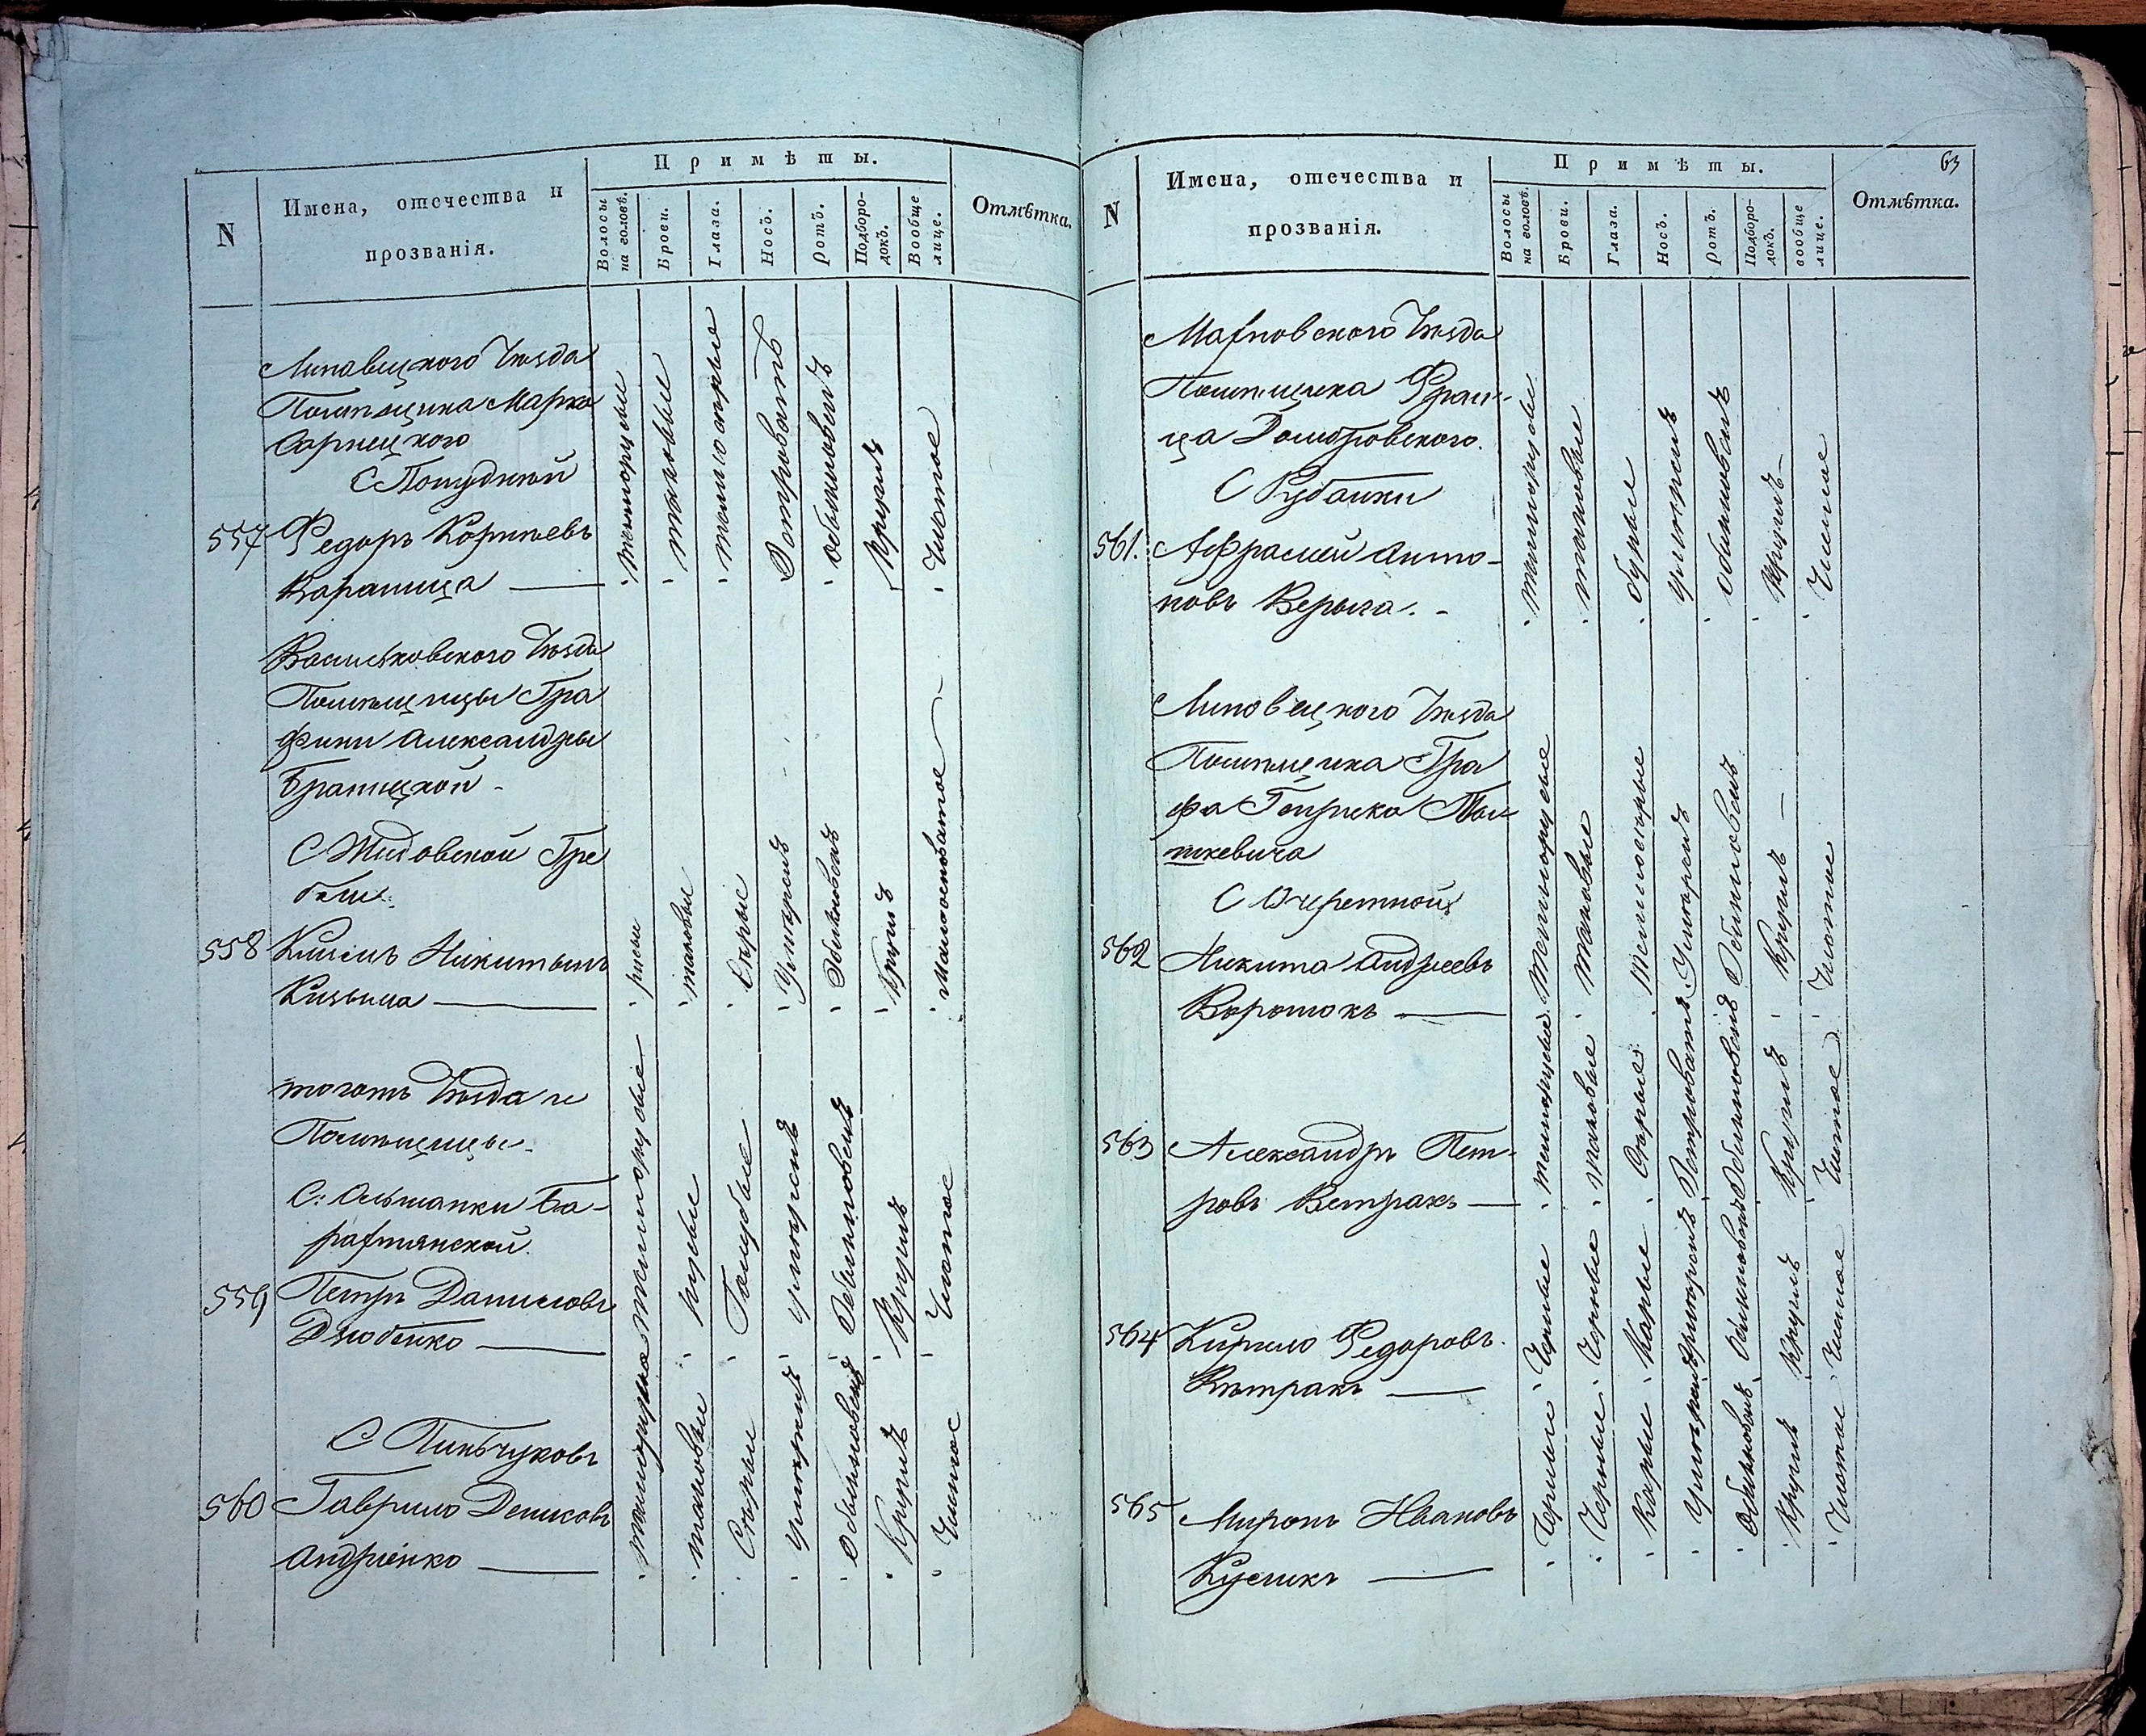 N
Имена, отечества и
прозванія.
Примѣты.
Волосы
на головѣ.
Брови.
Глаза.
Носъ.
Ротъ.
Подборо-
докъ.
Вообще
лице.
Отмѣтка.
Липавецкого Уѣзда
Помѣщика Марка
Сарнецкого
557 Федоръ Корнѣевъ
темнорусые
таковые
темносѣрые
Востроватъ
обыкновенъ
Круглъ
Чистое
Васильковского Уѣзда
Помѣщицы Гра
фини Александры
Браницкой -
С Жидовской Гре
бли.
558 Никитынъ
русые
таковые
Сѣрые
Умѣренъ
Обыкновенъ
Круглъ
тогожъ Уѣзда и
Помѣщицы.
С: Ольшанки Ба-
559 Петръ Даниловъ
Дзюбенко
темнорусые
русые
Голубые
умѣренъ
Обыкновенъ
Круглъ
Чистое
С Пинчуковъ
560 Гаврило Денисовъ
Андріенко
таковые
Сѣрые
умѣренъ
Обыкновенъ
Круглъ
Чистое
63
N
Имена, отечества и
прозванія.
Примѣты.
Волосы
на головѣ.
Брови.
Глаза.
Носъ.
Ротъ.
Подборо-
докъ.
вообще
лице.
Отмѣтка.
Махновского Уѣзда
Помѣщика Фран-
ца Домбровского.
561. Анто-
новъ Верыга. -
темнорусые
таковые
бурые
умѣренъ
обыкновенъ
Круглъ
Чистое
Липовецкого Уѣзда
Помѣщика Гра
фа Генрика Тыш-
кевича
С Очеретной
562 Никита Андреевъ
Воротокъ
темнорусые
таковые
темносѣрые
Умѣренъ
Обыкновенъ
Круглъ
Чистое
563 Александръ Пет-
ровъ Ветракъ
темнорусые
таковые
Сѣрые
Востроватъ
Обыкновенъ
Круглъ
Чистое
564 Кирило Федоровъ.
Вѣтракъ
Черные
Черные
Карые
Умѣренъ
Обыкновенъ
Круглъ
Чистое
565 Миронъ Ивановъ
Черные
Черные
Карые
Умѣренъ
Обыкновенъ
Круглъ
Чистое